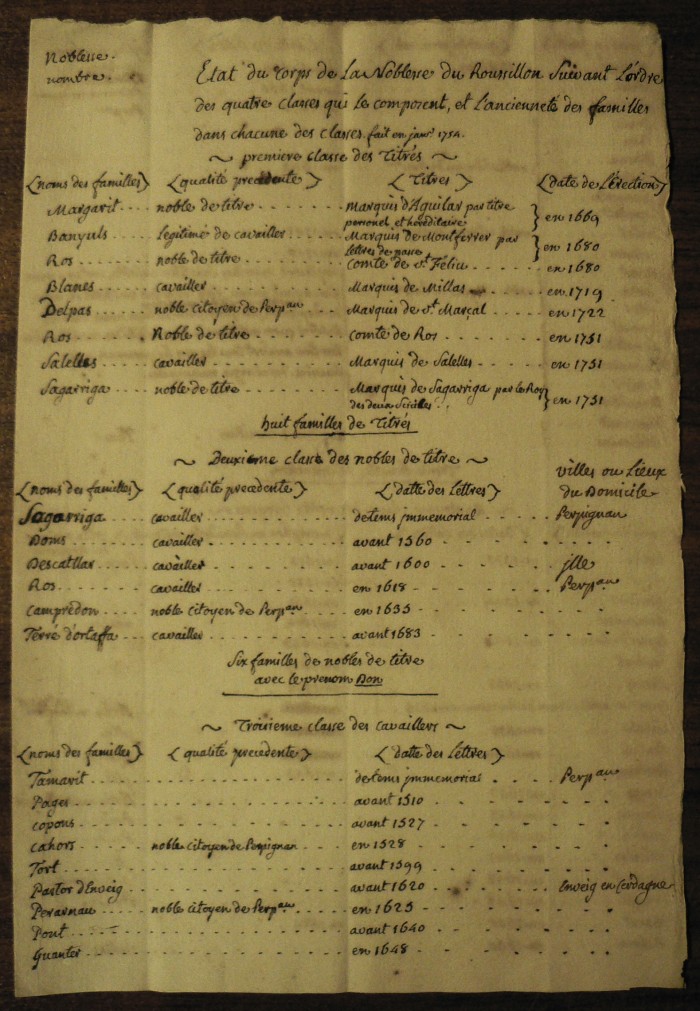 Noblesse.
nombre.
Etat du corps de La Noblesse du Roussillon Suivant L'ordre
des quatre classes qui Le composent, et L'ancienneté des familles
dans chacune des classes. fait en janv.r 1754.
~ premiere classe des Titrés ~
(noms des familles) (qualité precedente) (Titres) (date de L'érection)
Margarit .... noble de titre ........ Marquis d'Aguilar par titre
personel et héréditaire } en 1669
Banyuls ..... Légitimé de cavailler ..... Marquis de Montferrer par
Lettres de } en 1680
Ros ........ noble de titre ........ comte de S.t Féliu ...... en 1680
Blanes ..... cavailler ........ Marquis de Millas ...... en 1719
Delpas ..... noble citoyen de Perp.an .... Marquis de S.t Marçal .... en 1722
Ros ........ Noble de titre ........ comte de Ros ........ en 1751
Salelles .... cavailler ........ Marquis de Salelles ...... en 1751
Sagarriga .... noble de titre ........ Marquis de Sagarriga par le Roy
des deux Siciles } en 1751
huit familles de Titrés
~ Deuxieme classe des nobles de titre ~
villes ou Lieux
(noms des familles) (qualité precedente) (date des Lettres) du Domicile
Sagarriga .... cavailler ........ de tems jmmemorial ..... Perpignan
Doms ....... cavailler ........ avant 1560 ........
Descatllar .... cavailler ........ avant 1600 ........ jlle
Ros ........ cavailler ........ en 1618 ........ Perp.an
Campredon .... noble citoyen de Perp.an .... en 1635 ........
Terré d'ortaffa .... cavailler ........ avant 1683 ........
Six familles de nobles de titre
avec le prenom Don
~ Troisieme classe des cavaillers ~
(noms des familles) (qualité precedente) (date des Lettres)
Tamarit ........ de tems jmmemorial ..... Perp.an
Pages ........ avant 1510 ........
copons ........ avant 1527 ........
cahors ..... noble citoyen de Perpignan .... en 1528 ........
Tort ........ avant 1599 ........
Pastor d'Enveig ........ avant 1620 ........ Enveig en Cerdagne
Perarnau .... noble citoyen de Perp.an .... en 1625 ........
Pont ........ avant 1640 ........
Guanter ........ en 1648 ........